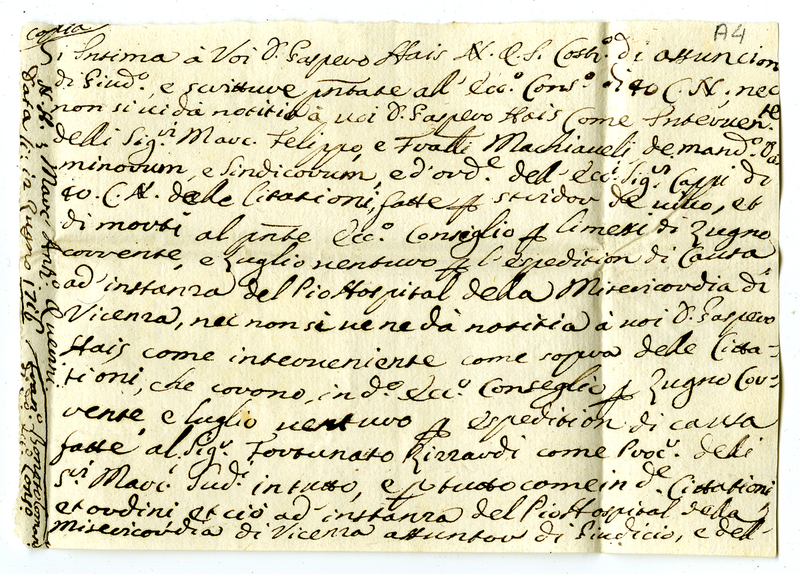 copia
A4
Si Intima à Voi D. Gaspero Hais N. Q. S. Costo. di assuncion
di Giudo., e scritture pñtate all' Ecco. Conso. di 40 C. N., nec
non si ui dà notitia à uoi D. Gaspero Hais Come Interuente
delli Sigri. Marc. Felippo, e Fratli Machiaveli demando. Da
minorum, e Sindicorum, e d'orde. dell' Ecci. Sigri. Cappi di
40. C. N. delle Citationi, fatte p stridor de uiuo, et
di morti al pñte Ecco. Conseglio p li mesi di Zugno
corrente, e Luglio uenturo p l'espedition di Causa
ad instanza del Pio Hospital della Misericordia di
Vicenza, nec non si ue ne dà notitia à uoi D. Gaspero
Hais come interueniente come sopra delle Citta-
tioni, che corono, in do. Ecco. Conseglio p Zugno Cor-
rente, e luglio uenturo p espedition di causa
fatte al Sigr. Fortunato Rizzardi come Procr. deli
Sri. Marc. Sudi. in tutto, e p tutto come in de. Cittationi,
et ordini, et ciò ad instanza del Pio Hospital della
Misericordia di Vicenza assuntor di Giudicio, e dell'
N. H. 3 Marc' Anto. Querini
Data li 12 Zugno 1716